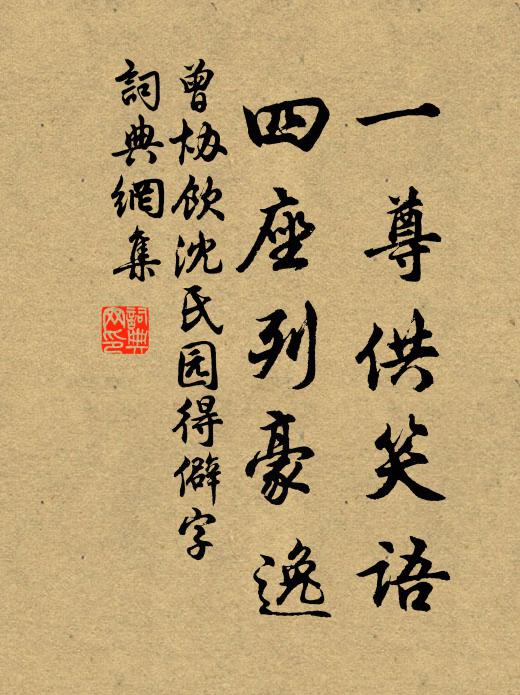 一尊供笑语
四座列豪逸
曾协饮沈氏园得僻字
詞典網集
詞典网印